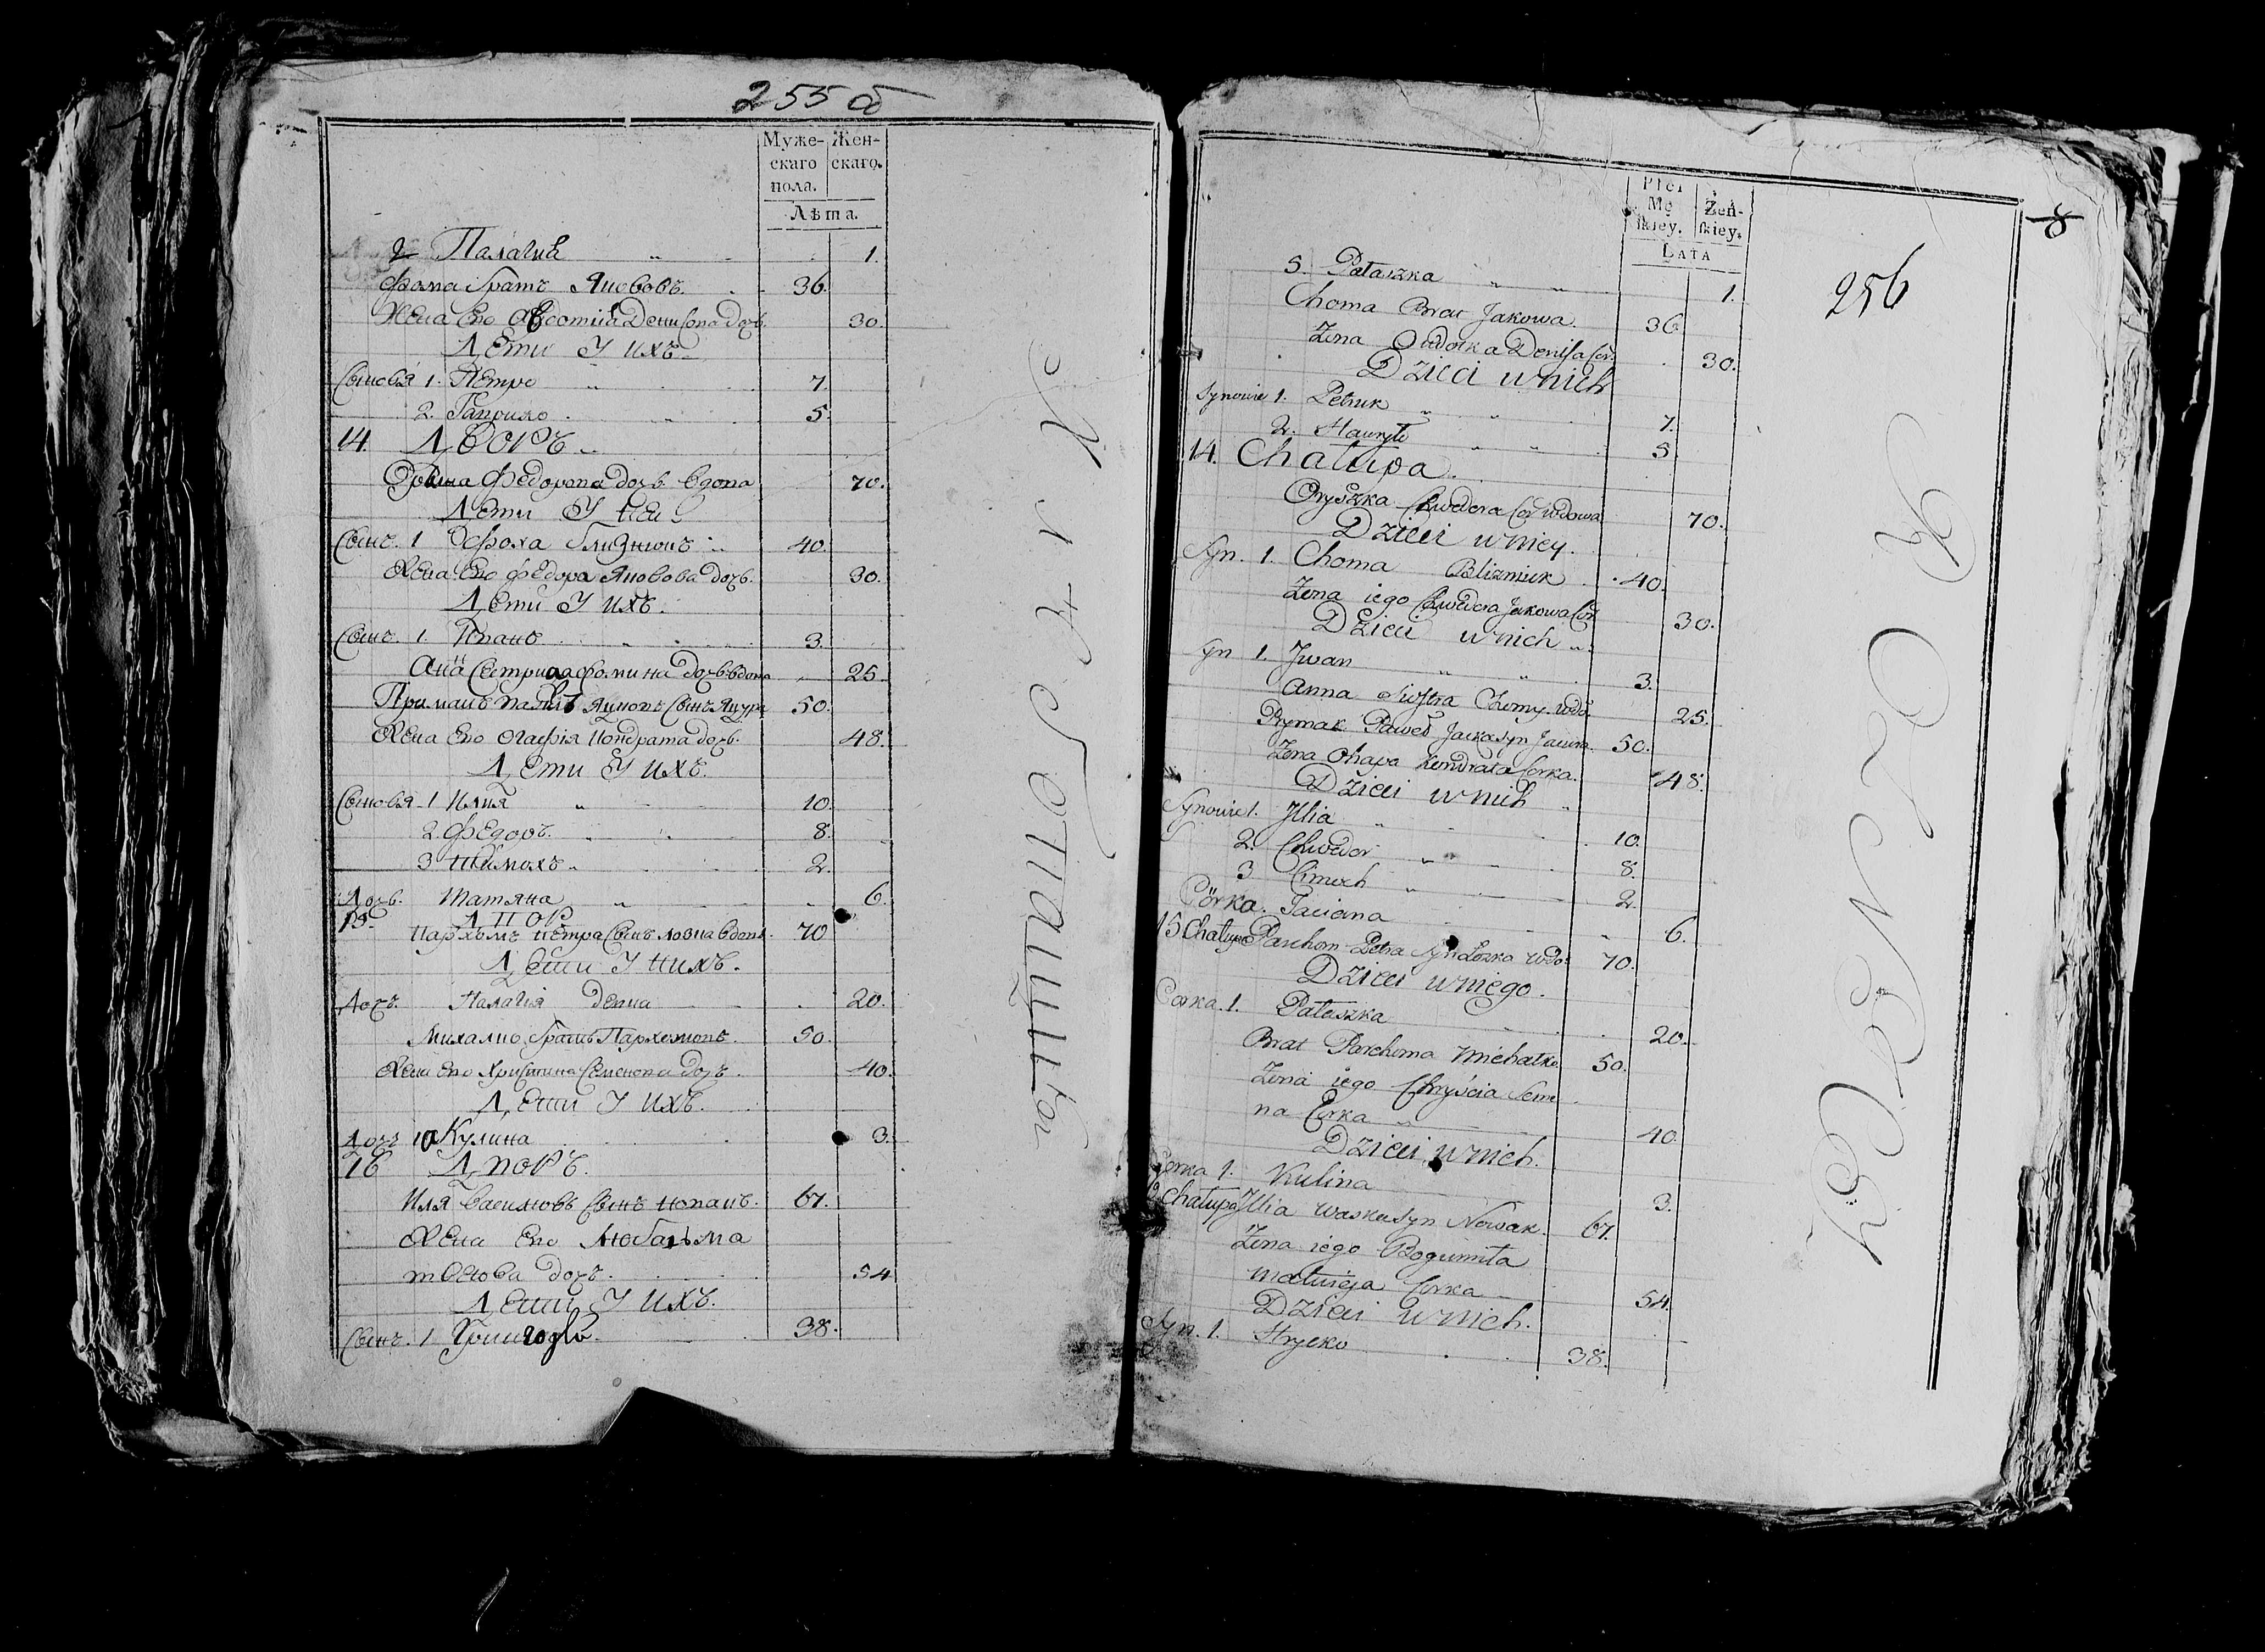 255 об
Муже- Жен-
скаго скаго.
пола.
Лѣта.
2 Палагия 1.
Фома братъ Якововъ. 36.
Жена Его Авдотия Денисова дочь. 30.
Дети У ихъ
Сыновья 1. Петро 7.
2. Гаврило 5.
14. Дворъ
Федорова дочь вдова 70.
Дети У ней
Сынъ. 1 40.
Жена Его Федора Яковова дочь. 30.
Дети У ихъ.
Сынъ. 1. Иванъ 3.
Сестра Фомина дочь вдова 25.
Примакъ Павелъ Яцковъ Сынъ 50.
Жена Его Огафия Кондрата дочь. 48.
Дети У ихъ.
Сыновья 1 Илия 10.
2. Федоръ. 8.
3 Тимохъ 2.
Дочь. Татяна 6.
15. Дворъ
Пархомъ Петра Сынъ вдовъ. 70
Дети У нихъ.
Дочь. Палагия девка 20.
Михалко братъ Пархомовъ. 50.
Жена Его Христина Семенова дочь. 40.
Дети У ихъ.
Дочь 1 Кулина 3.
16 Дворъ.
Иля Василиовъ Сынъ Новакъ. 67.
Жена Его
дочь. 54
Дети У ихъ.
Сынъ. 1 38.
Płci
Mę Żeń-
skiey. skiey.
LATA
8
256
3. Pałaszka 1.
Choma Brat Jakowa. 36
Żona Owdotka Denisa Cor. 30.
Dzieci u nich
Synowie 1. Petruk 7.
2. Hawryło 5
14. Chałupa.
Oryszka Chwedora Cor wdowa 70.
Dzieci u niey.
Syn. 1. Choma Blizniuk 40.
Żona iego Chwedora Jakowa Cor 30.
Dzieci u nich
Syn 1. Jwan 3.
Anna Siostra Chomy wdo. 25.
Prymak Paweł Jacka Syn 50.
Żona Ohapa Kondrata Corka. 48.
Dzieci u nich
Synowie 1. Jllia 10.
2. Chwedor 8.
3 Cimoch 2
Córka. Taciana 6.
15 Chałupa Parchom Petra Syn Lozka wdo: 70.
Dzieci u niego.
Corka. 1. Pałaszka 20.
Brat Parchoma Michałko 50.
Żona iego Chryścia Seme
na Corka 40.
Dzieci u nich.
Corka 1. Kulina 3.
Chałupa Jllia Waska Syn Nowak. 67.
Żona iego Bogumiła
Matwieja Corka 54.
Dzieci u nich.
Syn. 1. Hrycko 38.